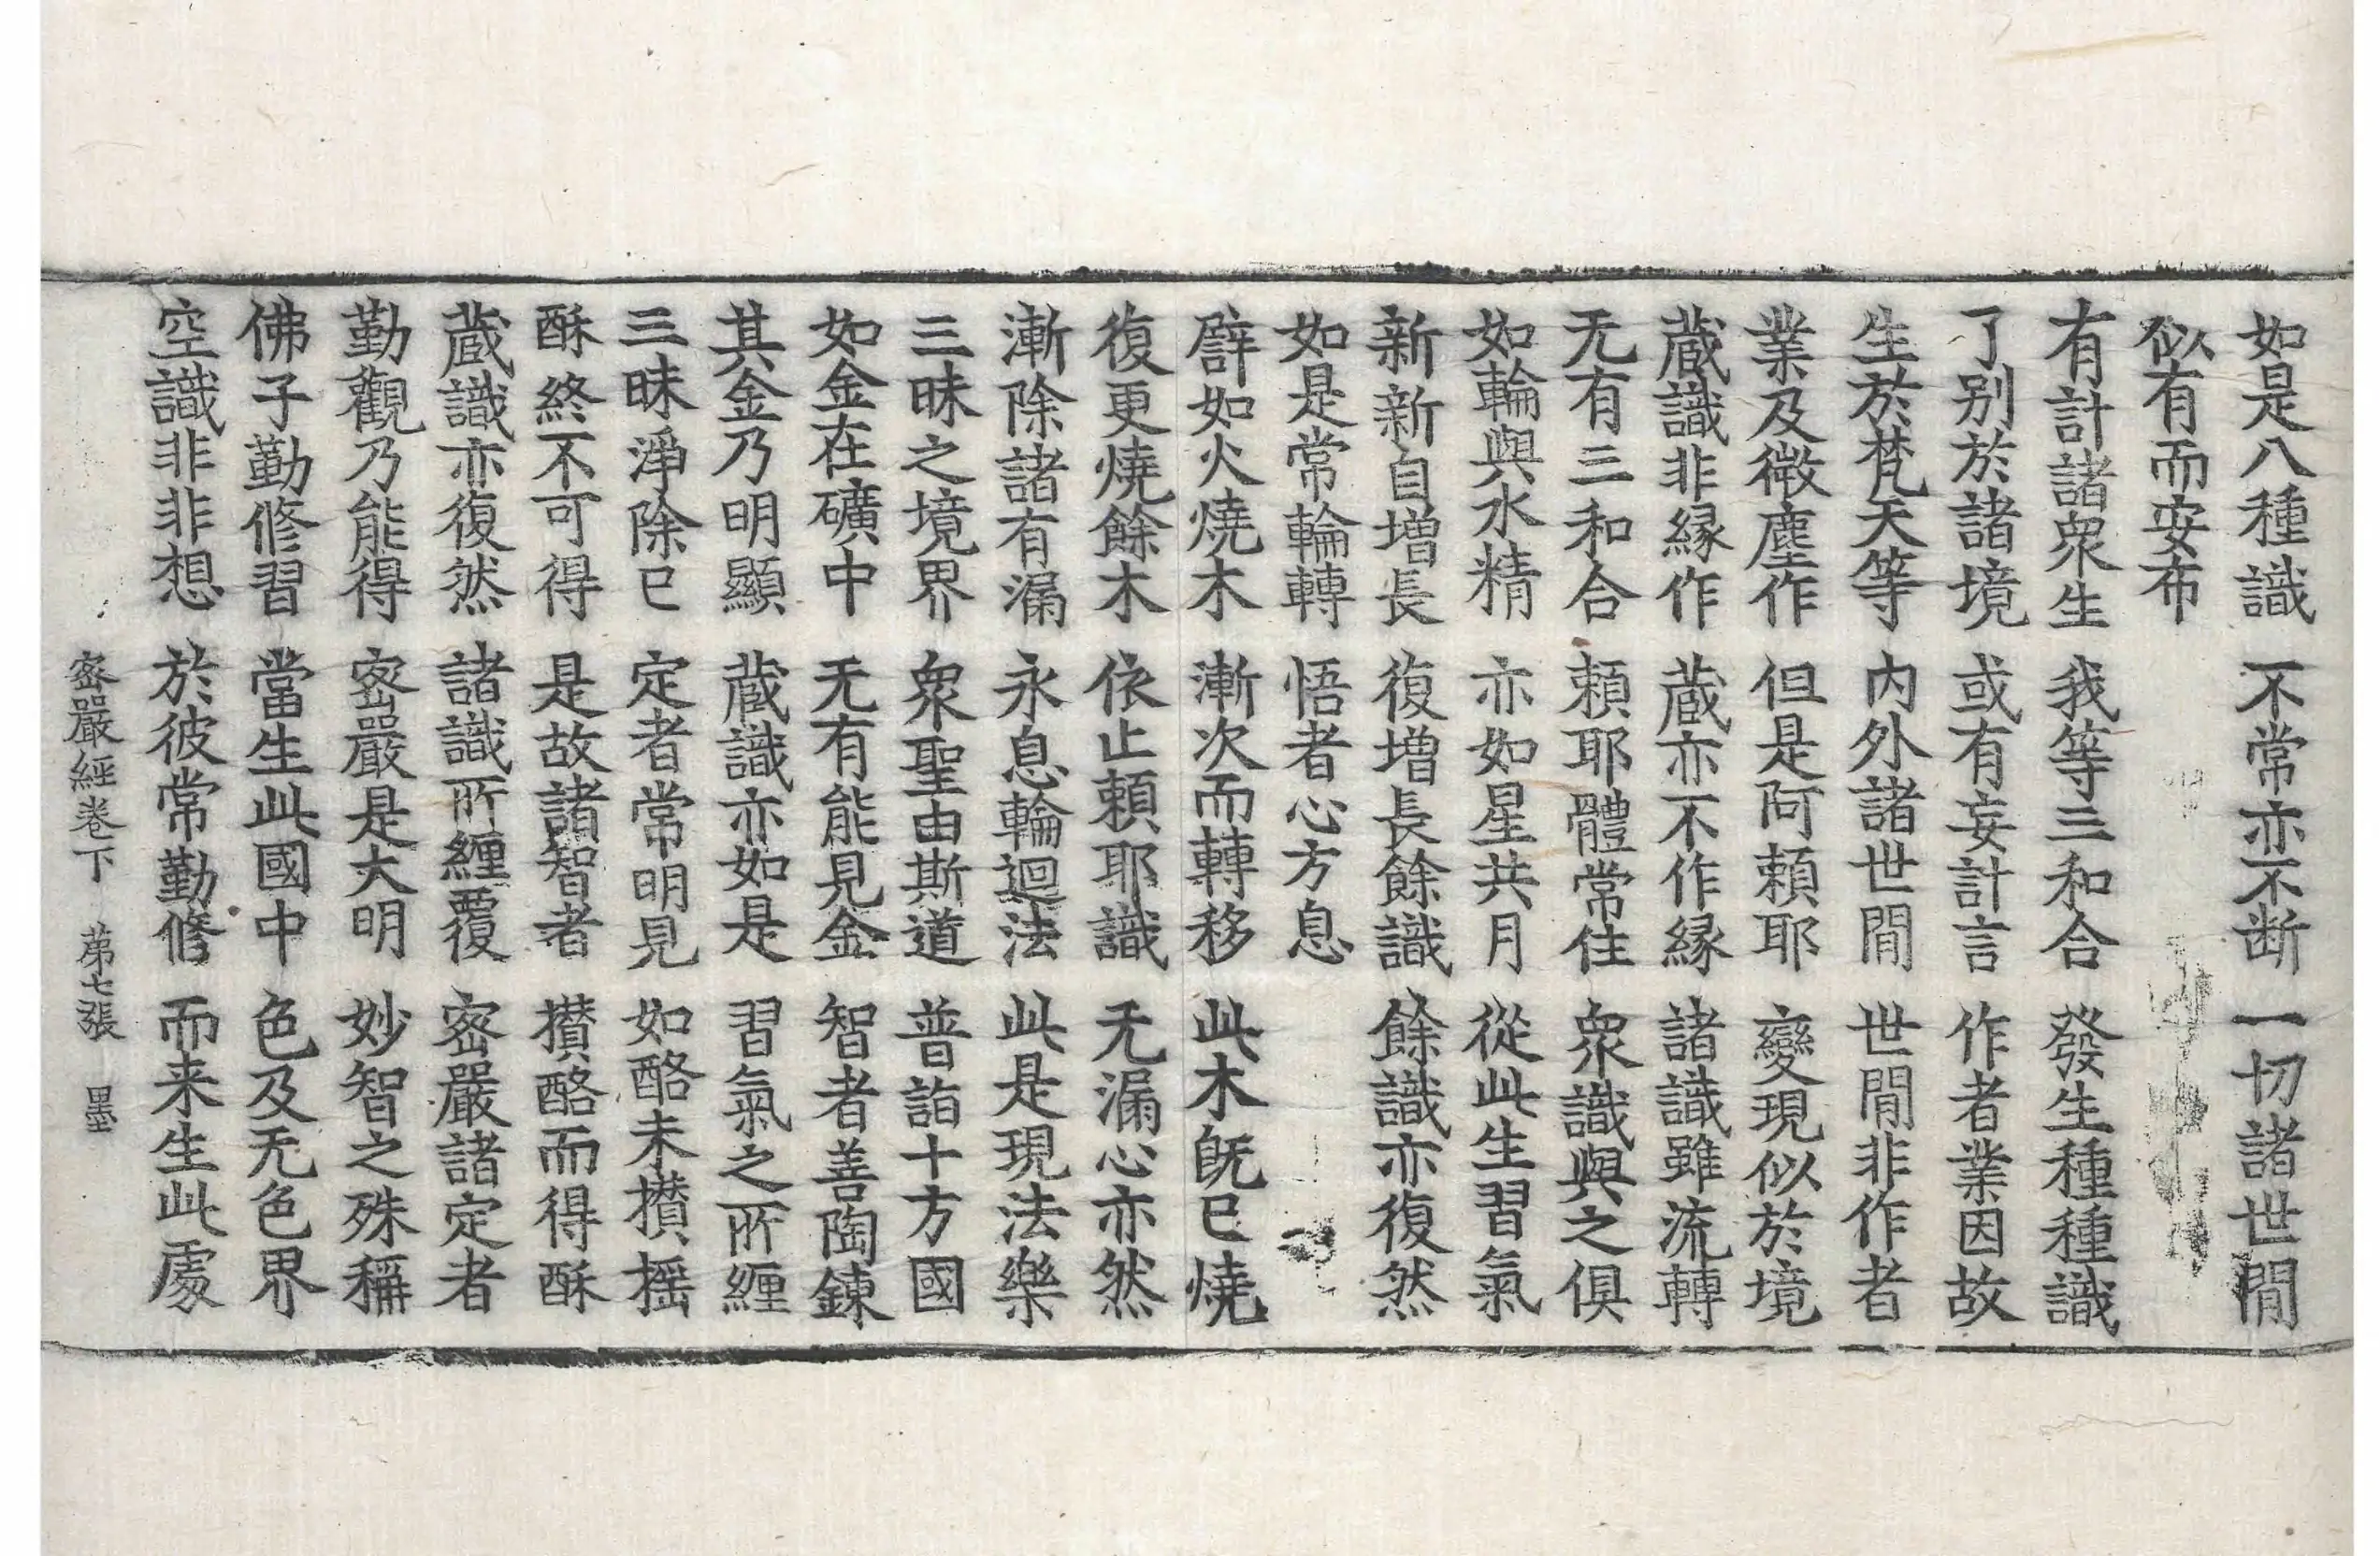 如是八種識 不常亦不断 一切諸世間
似有而安布
有計諸衆生 我等三和合 發生種種識
了别於諸境 或有妄計言 作者業因故
生於梵天等 内外諸世間 世間非作者
業及微塵作 但是阿頼耶 變現似於境
蔵識非縁作 蔵亦不作縁 諸識雖流轉
无有三和合 頼耶體常住 衆識與之俱
如輪與水精 亦如星共月 從此生習氣
新新自增長 復增長餘識 餘識亦復然
如是常輪轉 悟者心方息
譬如火燒木 漸次而轉移 此木旣已燒
復更燒餘木 依止頼耶識 无漏心亦然
漸除諸有漏 永息輪迴法 此是現法樂
三昧之境界 衆聖由斯道 普詣十方國
如金在礦中 无有能見金 智者善陶鍊
其金乃明顯 蔵識亦如是 習氣之所纒
三昧淨除已 定者常明見 如酪未攅揺
酥終不可得 是故諸智者 攅酪而得酥
蔵識亦復然 諸識所纒覆 密嚴諸定者
勤觀乃能得 密嚴是大明 妙智之殊稱
佛子勤修習 當生此國中 色及无色界
空識非非想 於彼常勤修 而来生此處
密嚴經卷下 苐七張 墨